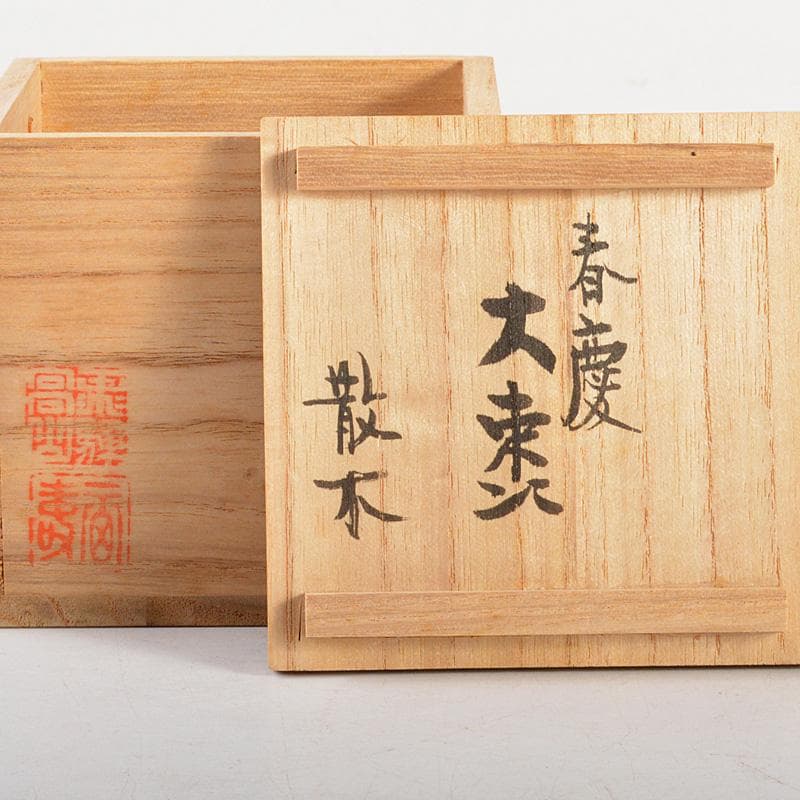 春慶
大棗
散木